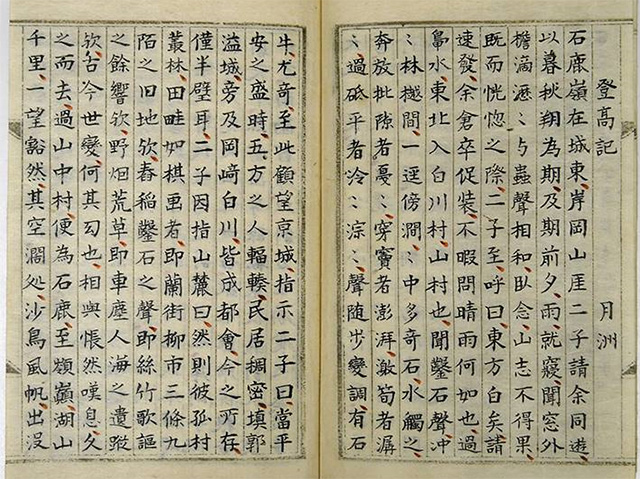 登高記 月洲
石鹿嶺在城東、岸岡山崖二子請余同遊、
以暮秋翔為期、及期前夕、雨、就寢、聞窓外
檐滴瀝〻与蟲聲相和、臥念、山志不得果、
既而恍惚之際、二子至、呼曰東方白矣請
速發、余倉卒促裝、不暇問晴雨何如也、過
鳧水、東北入白川村、山村也、聞鑿石聲冲
〻林樾間、一逕傍澗、〻中多奇石、水觸之、
奔放批隙者戞〻、穿竇者澎湃、激筍者潺
〻過砥平者泠〻淙〻、聲随步變調、有石
牛尤奇至此顧望京城、指示二子曰、當平
安之盛時、五方之人輻輳、民居稠密、填郭
溢城、旁及岡崎白川、皆成都會、今之所存、
僅半壁耳、二子因指山麓曰、然則彼孤村
叢林、田畦如棋畫者、即蘭街柳市三條九
陌之旧地欤、舂稲鑿石之聲、即絲竹歌謳
之餘響欤、野烟荒草、即車塵人海之遺蹤
欤、古今世變、何其匆也、相與悵然嘆息久
之而去、過山中村、便為石鹿、至巓、湖山
千里、一望豁然、其空濶処、沙鳥風帆、出没